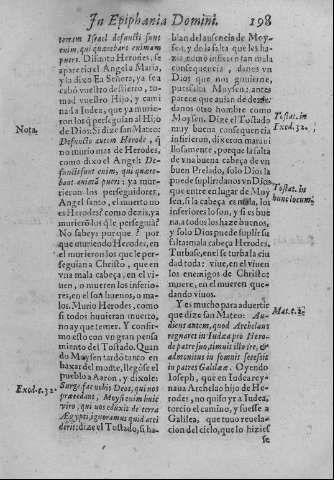 In Epiphania Domini.
198
terram Israel defuncti sunt
enim, qui quaerebant animam
pueri. Difunta Herodes, se
aparecio el Angel a Maria,
y la dixo Ea Señora, ya sea
cabó vuestro destierro, to-
mad vuestro Hijo, y cami
nad a Iudea, que ya murie-
ron los q̃ perseguian al Hijo
de Dios: Si dize san Mateo:
Nota.
Defuncto autem Herode, q̃
no murio mas de Herodes,
como dixo el Angel a De-
functi sunt enim, qui quaere-
bant animã pueri: ya mu-
rieron los perseguidores,
Angel santo, el muerto no
es Herodes? como dezis, ya
murierõ los q̃ le perseguiã?
No sabeys porque? por
que muriendo Herodes, en
el murieron los que le perse
guian a Christo, que en
vna mala cabeça, en el vi-
uen, o mueren los inferio-
res, en el son buenos, o ma-
los. Murio Herodes, como
si todos huuieran muerto,
no ay que temer. Y confir-
mo esto con vn gran pensa
miento del Tostado. Quan
do Moysen tardó tanto en
baxar del monte, llegóse el
pueblo a Aaron, y dixole:
Exod. c. 32.
Surge, fac nobis Deos, qui nos
praecedant, Moysi enim huic
viro, qui nos eduxit de terra
Aegypti, ignoramus quid acci
derit: dize el Tostado, si ha-
blan del ausencia de Moy-
sen, y de la falta que les ha-
zia, como infieren tan mala
consecuencia, danos vn
Dios que nos gouierne,
pues falta Moysen: antes
parece que auian de dezir:
danos otro hombre como
Moysen. Dize el Tostado
Tostat. in
Exod. 32.
muy buena consequencia
infirieron, dixeron maraui
llosamente, porque la falta
de vna buena cabeça de vn
buen Prelado, solo Dios la
puede suplir: danos vn Dios
Tostat. in
hunc locum.
que entre en lugar de Moy
sen, si la cabeça es mala, los
inferiores lo son, y si es bue
na, a todos los haze buenos,
y solo Dios puede suplir su
falta: mala cabeça Herodes,
Turbase, en el se turba la ciu
dad toda: viue, en el viuen
los enemigos de Christo:
muere, en el mueren que-
dando viuos.
Y es mucho para aduertir
que dize san Mateo: Au-
Mat. c. 2.
diens autem, quod Archelaus
regnaret in Iudaea pro Hero-
de patre suo, timuit illo ire, &
admonitus in somnis secessit
in partes Galilaeae. Oyendo
Ioseph, que en Iudea rey-
naua Archelao hijo de He-
rodes, no quiso yr a Iudea,
torcio el camino, y fuesse a
Galilea, que tuuo reuela-
cion del cielo, que lo hizies
se